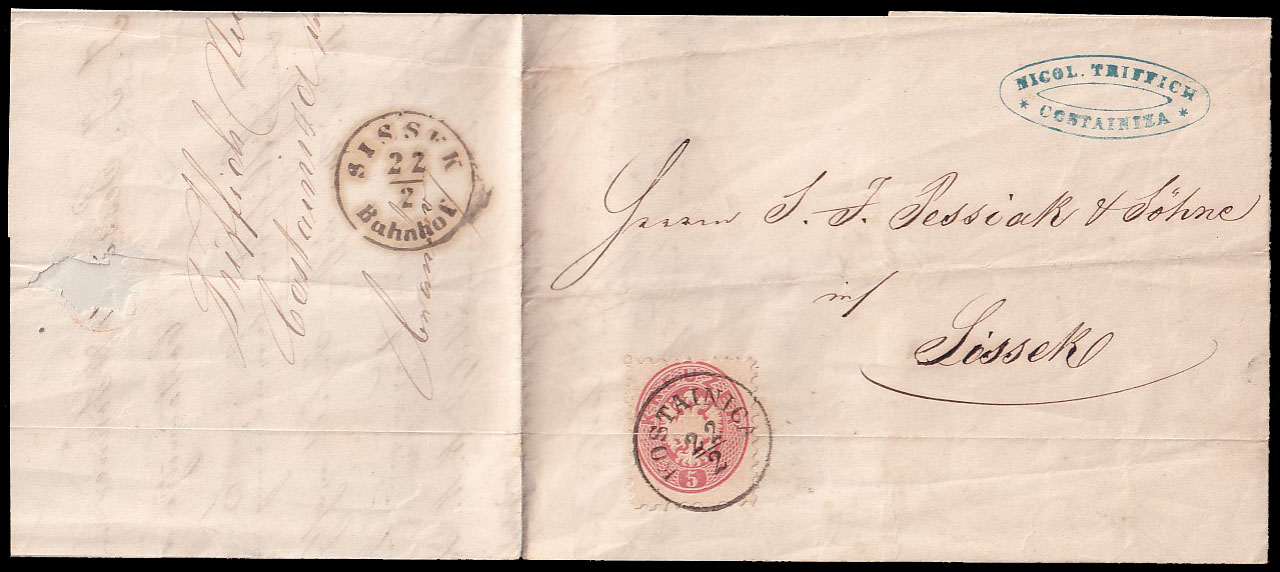 NICOL. TRIFFICH
* COSTAINIZA *
Herrn S. F. Pessiak & Söhne
in
Sissek
KOSTAINICA
22
2
5
SISSEK
22
2
Bahnhof
Triffich
Costainiza